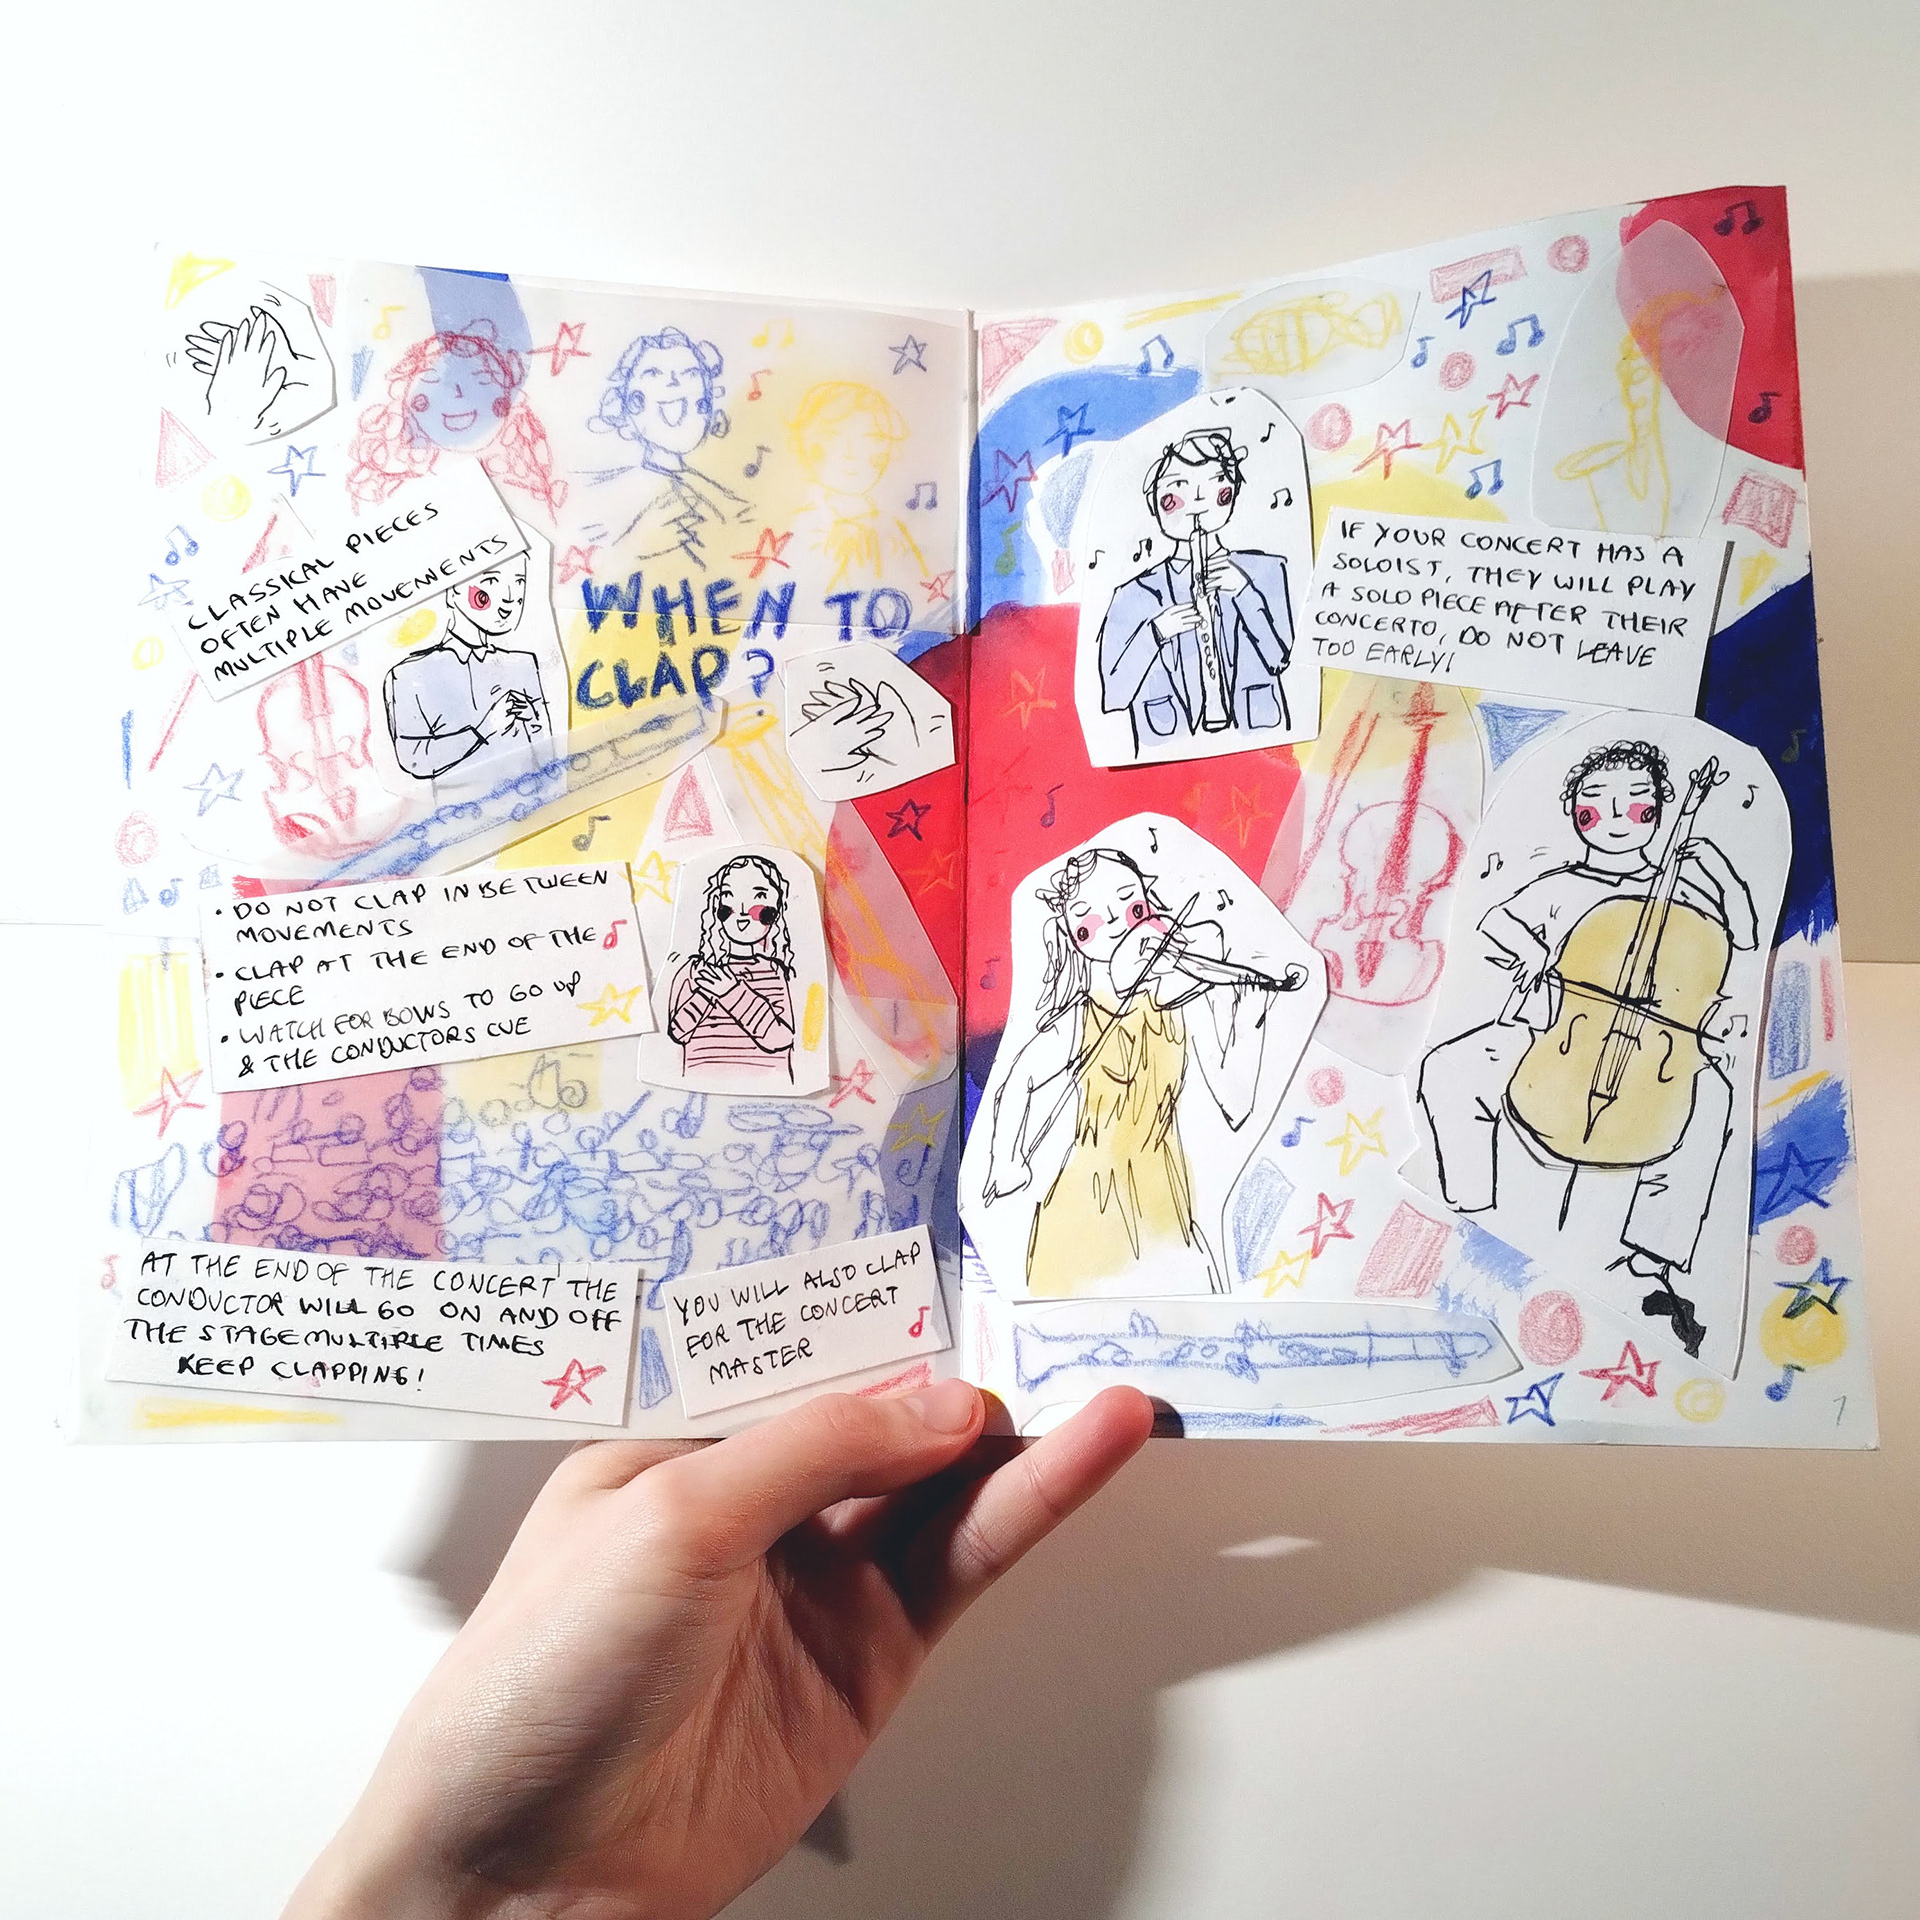 CLASSICAL PIECES
OFTEN HAVE
MULTIPLE MOVEMENTS
WHEN TO
CLAP?
• DO NOT CLAP IN BETWEEN
MOVEMENTS
• CLAP AT THE END OF THE
PIECE
• WATCH FOR BOWS TO GO UP
& THE CONDUCTORS CUE
AT THE END OF THE CONCERT THE
CONDUCTOR WILL GO ON AND OFF
THE STAGE MULTIPLE TIMES
KEEP CLAPPING!
YOU WILL ALSO CLAP
FOR THE CONCERT
MASTER
IF YOUR CONCERT HAS A
SOLOIST, THEY WILL PLAY
A SOLO PIECE AFTER THEIR
CONCERTO, DO NOT LEAVE
TOO EARLY!
7